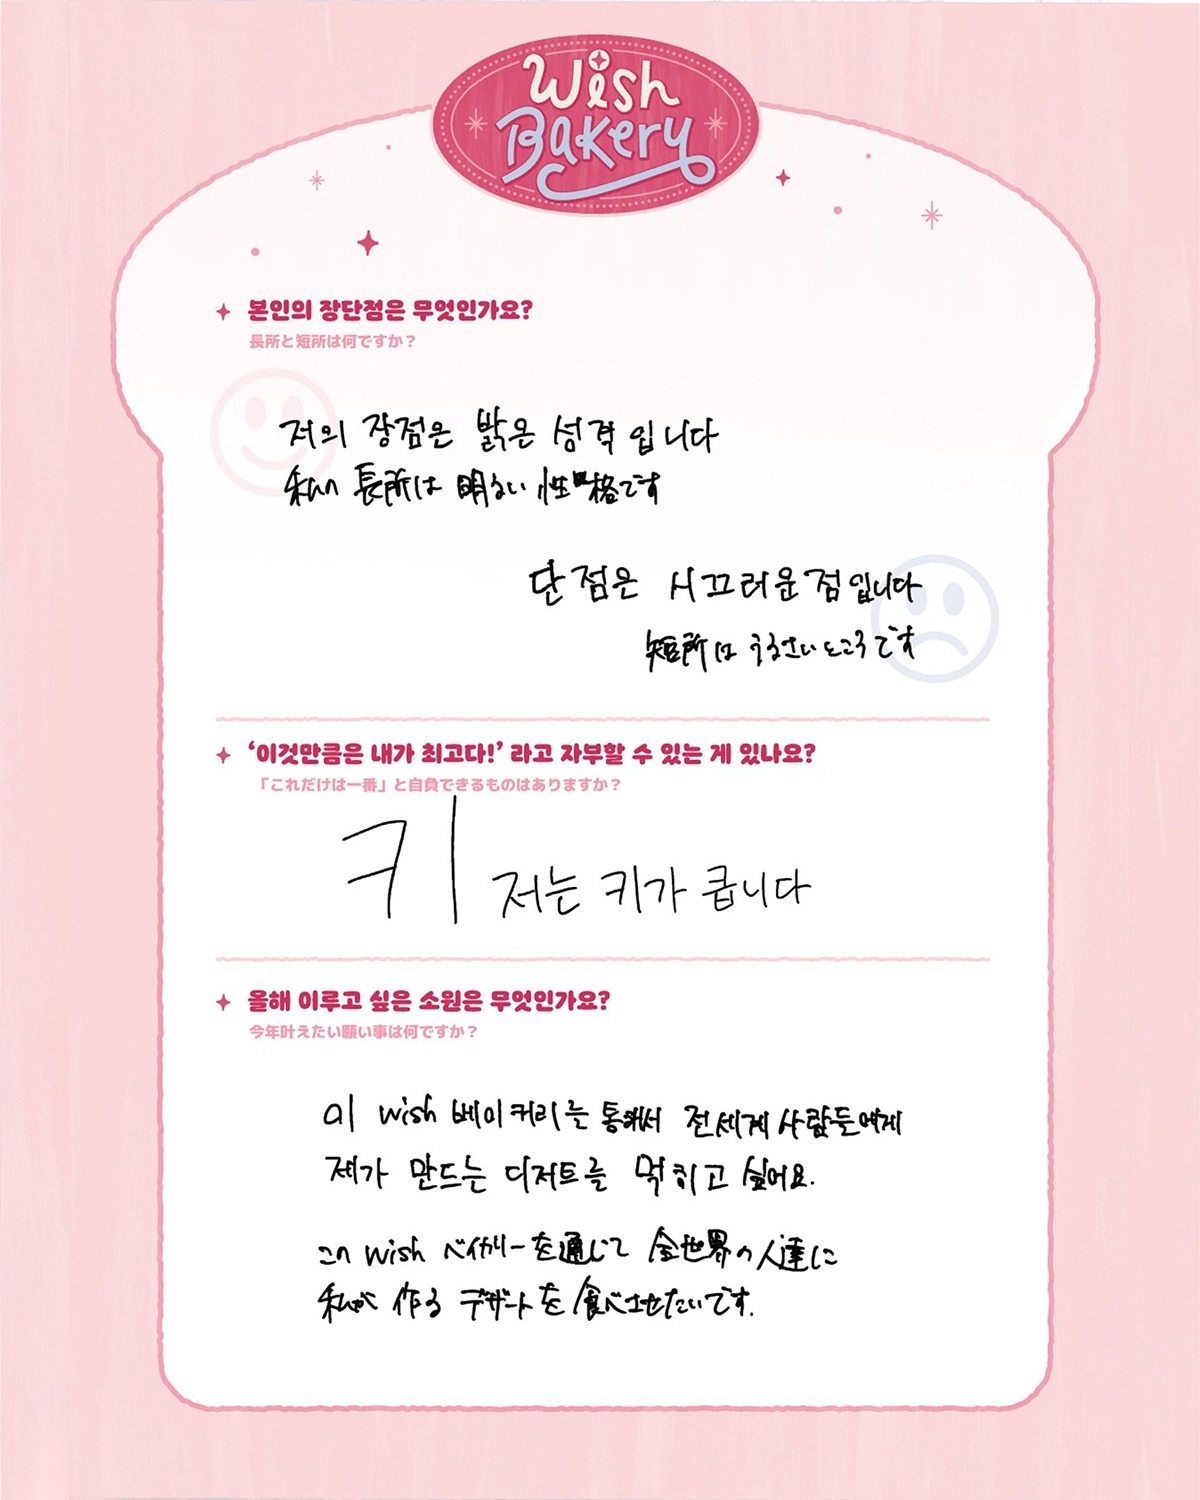 Wish
Bakery
본인의 장단점은 무엇인가요?
長所と短所は何ですか？
저의 장점은 밝은 성격입니다
私の長所は明るい性格です
단점은 시끄러운점입니다
短所はうるさいところです
‘이것만큼은 내가 최고다!’ 라고 자부할 수 있는 게 있나요?
「これだけは一番」と自負できるものはありますか？
키 저는 키가 큽니다
올해 이루고 싶은 소원은 무엇인가요?
今年叶えたい願い事は何ですか？
이 wish 베이커리를 통해서 전세계 사람들에게
제가 만드는 디저트를 먹히고 싶어요.
この wish ベイカリーを通じて 全世界の人達に
私が 作る デザートを食べさせたいです.